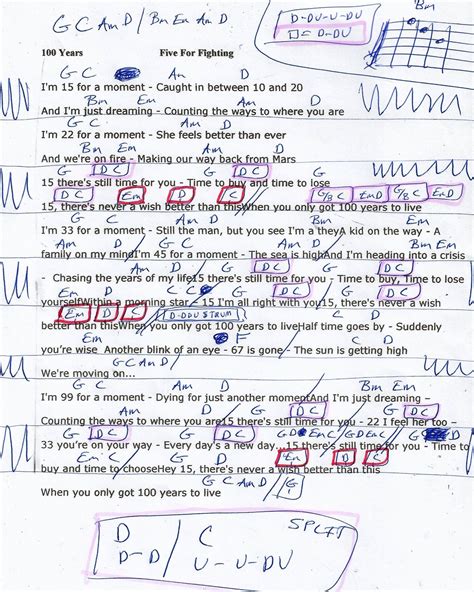 G C Am D / Bm Em Am D
D-DU-U-DU
□ = D-DU
Bm
100 Years Five For Fighting
G C Am D
I'm 15 for a moment - Caught in between 10 and 20
Bm Em Am D
And I'm just dreaming - Counting the ways to where you are
G C Am D
I'm 22 for a moment - She feels better than ever
Bm Em Am D
And we're on fire - Making our way back from Mars
G D C G D C G
15 there's still time for you - Time to buy and time to lose
D C Em D C G/B C Em D G/B C Em D
15, there's never a wish better than thisWhen you only got 100 years to live
G C Am D
I'm 33 for a moment - Still the man, but you see I'm a theyA kid on the way - A
Am D G C Am D
family on my mindI'm 45 for a moment - The sea is highAnd I'm heading into a crisis
G D C G D C
- Chasing the years of my life15 there's still time for you - Time to buy, Time to lose
Em C G D C
yourselfWithin a morning star - 15 I'm all right with you15, there's never a wish
Em D C D-DDU STRUM
better than thisWhen you only got 100 years to liveHalf time goes by - Suddenly
Em C Em
you're wise Another blink of an eye - 67 is gone - The sun is getting high
G C Am D
We're moving on...
Am D Bm Em
I'm 99 for a moment - Dying for just another momentAnd I'm just dreaming -
Am D G D C G
Counting the ways to where you are15 there's still time for you - 22 I feel her too -
D C G D C
33 you're on your way - Every day's a new day...15 there's still time for you - Time to
Em C G D C Em D C
buy and time to chooseHey 15, there's never a wish better than this
G C Am D G
When you only got 100 years to live
SPLIT
D / C
D-D / U-U-DU